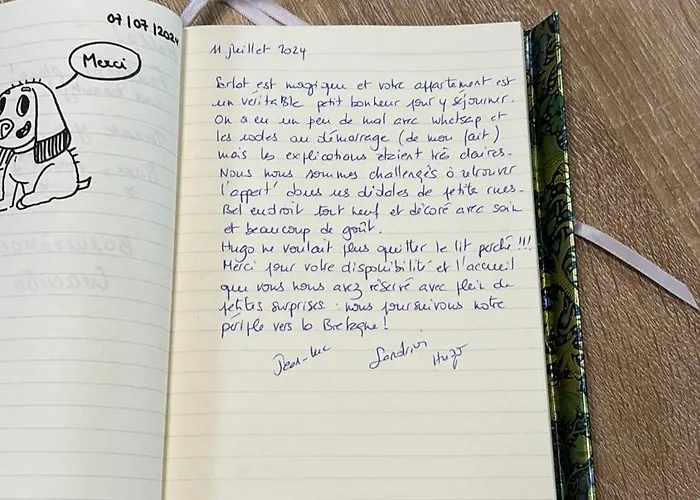 07/07/2024
Merci
11 juillet 2024
Sarlat est magique et votre appartement est
un véritable petit bonheur pour y séjourner.
On a eu un peu de mal avec whatsap et
les codes au démarrage (de mon fait)
mais les explications étaient très claires.
Nous nous sommes challengés à retrouver
l'appert' dans ces dédales de petite rues.
Bel endroit tout neuf et décoré avec soin
et beaucoup de goût.
Hugo ne voulait plus quitter le lit perché !!!
Merci pour votre disponibilité et l'accueil
que vous nous avez réservé avec plein de
petites surprises : nous poursuivons notre
périple vers la Bretagne !
Jean-Luc Sandrine Hugo